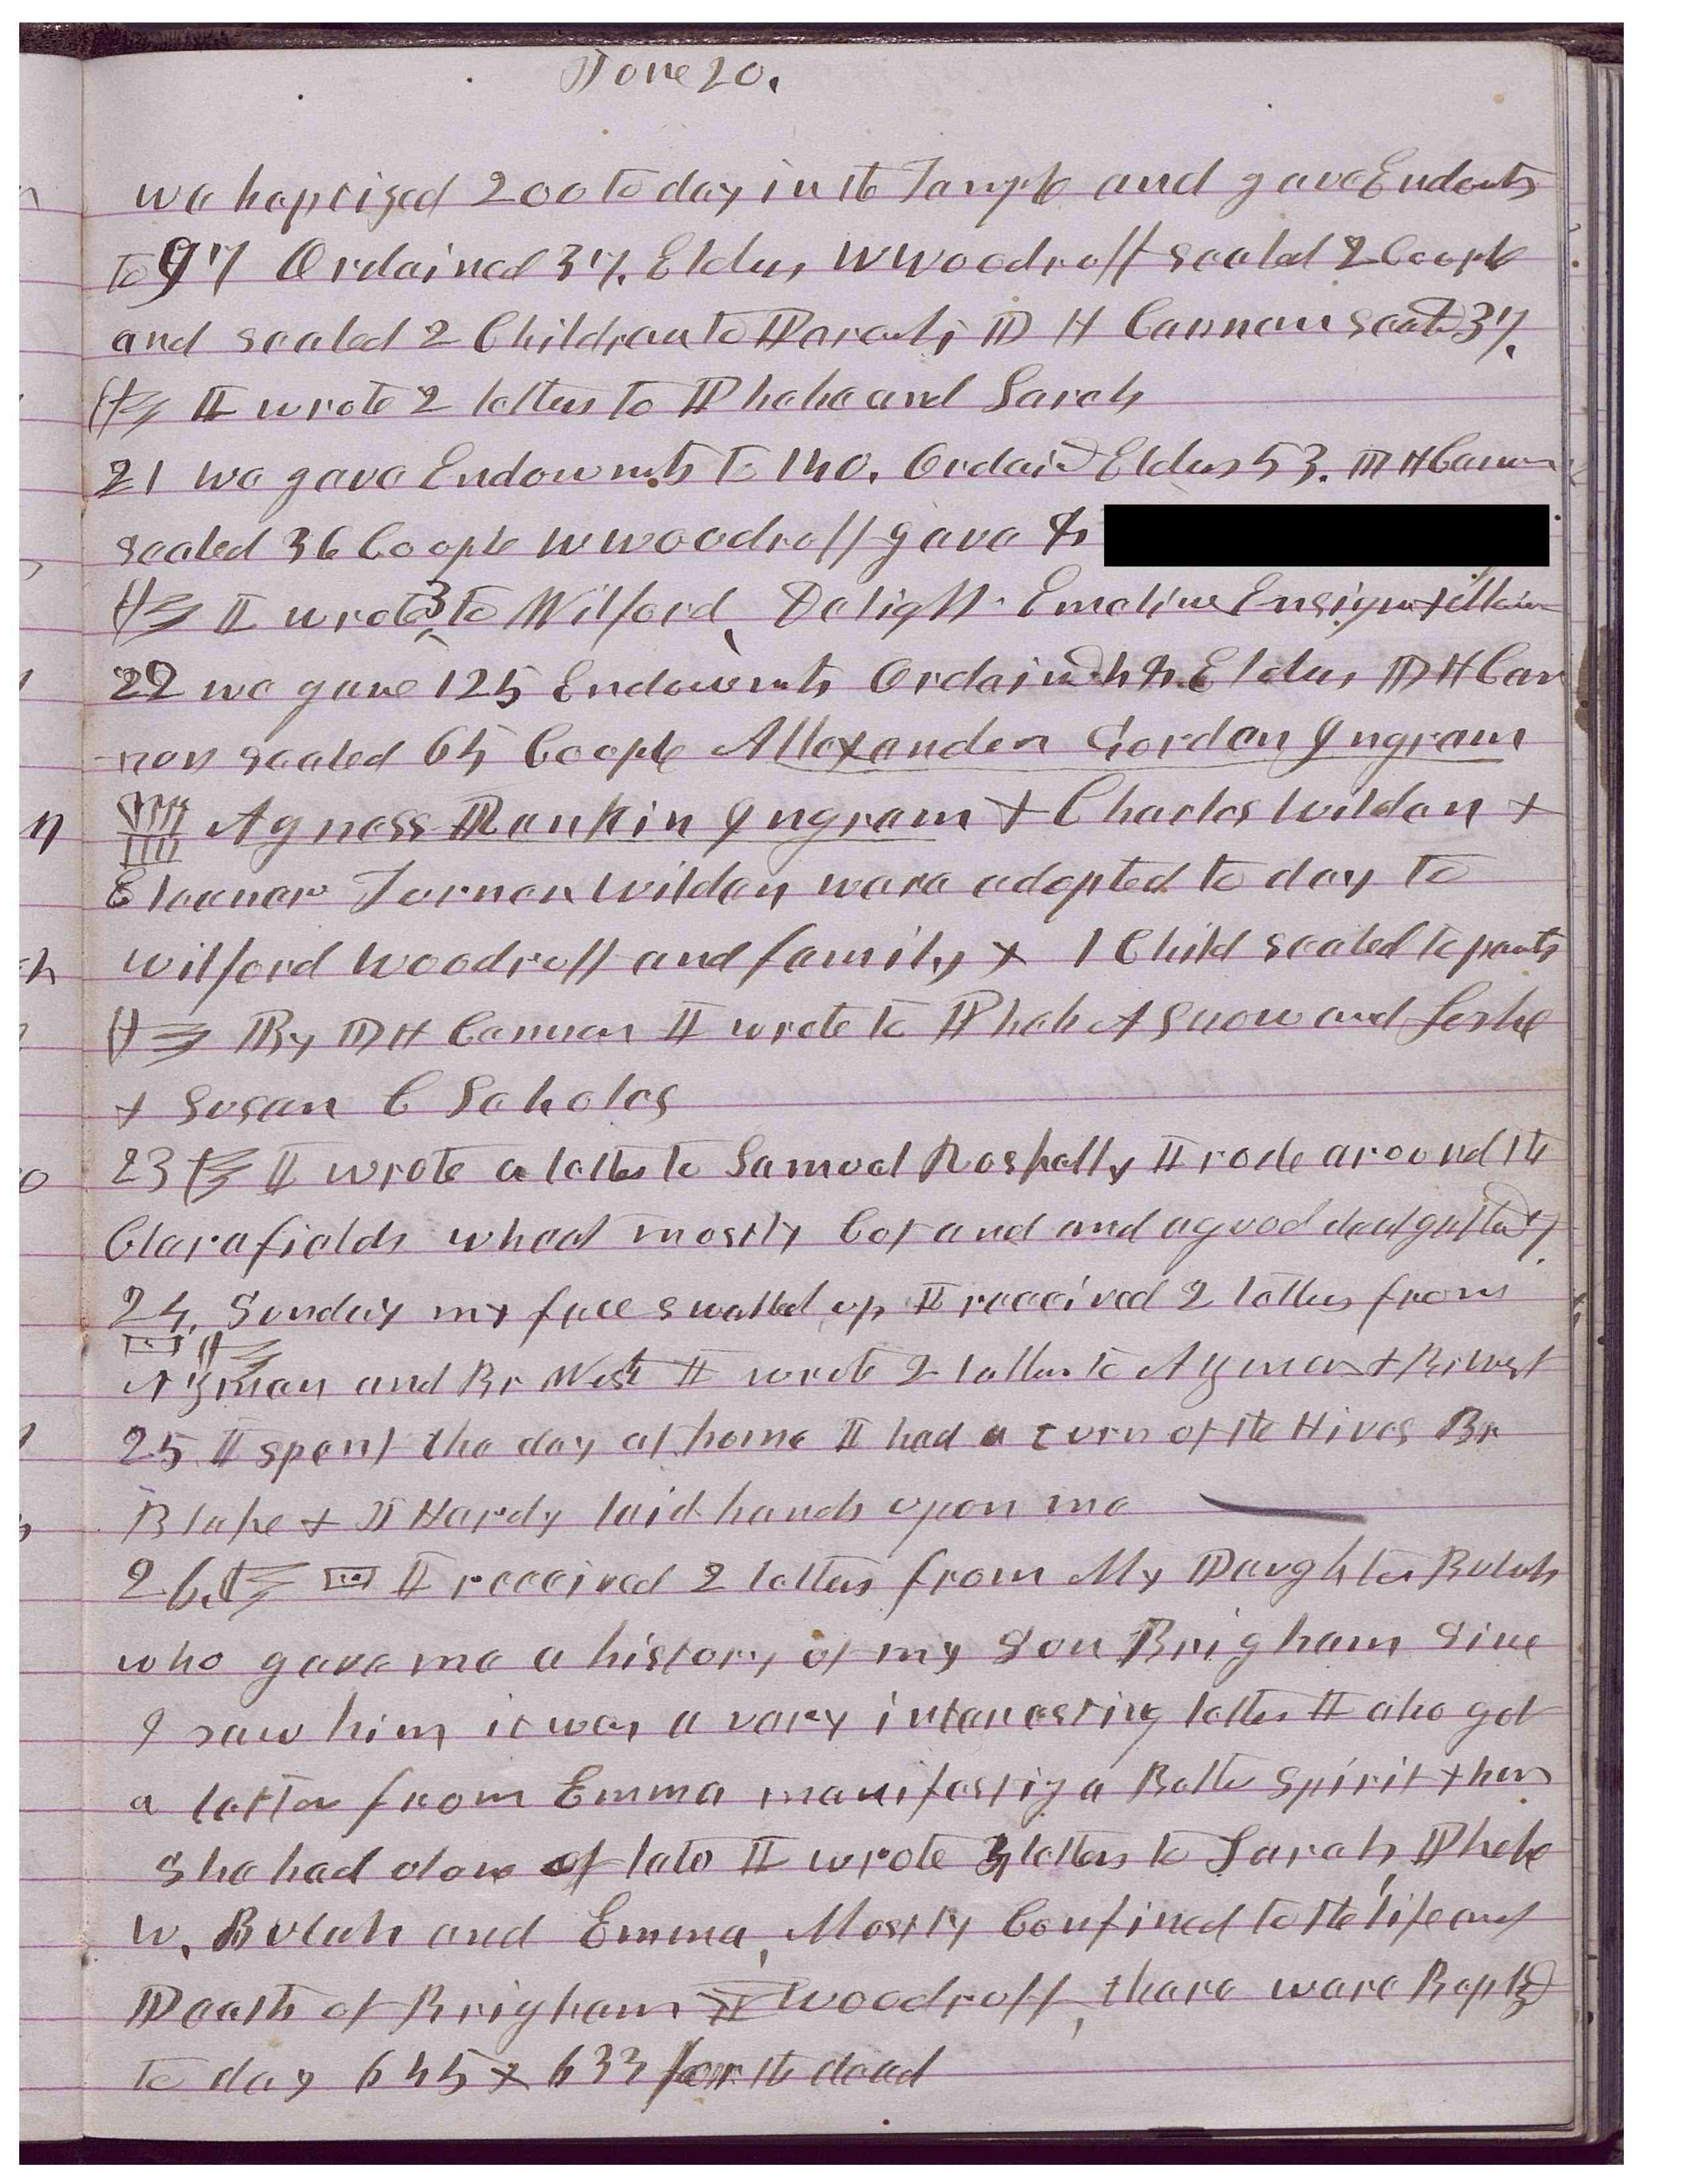 June 20.
we baptized 200 to day in the Temple and gave Endowts
to 97 Ordained 37. Elders, W Woodruff sealed 2 Couple
and sealed 2 Children to Parents, D H Cannon seald 37.
I wrote 2 letters to Phebe and Sarah
21 we gave Endowmts to 140. Ordaind Elders 53. D H Cannon
sealed 36 Couple W Woodruff gave
I wrote 3 to Wilford, Delight Emeline Ensign +
22 we gave 125 Endowmts Ordaind 44 Elders, D H Can
non sealed 65 Couple Allexander Gordon Ingram
Agness Rankin Ingram + Charles Wilden +
Eleanor Turner Wilden ware adopted to day to
Wilford Woodruff and family + 1 Child sealed to parts
By D H Cannon I wrote to Pheb A Snow and Leslie
+ Susan C Scholes
23 I wrote a letter to Samuel Roskelly I rode around the
Clara fields wheat mostly Cut and and a good deal gatherd
24. Sunday my face swelled up I received 2 letters from
Azmon and Br West I wrote 2 letters to Azmon + Br West
25 I spent the day at home I had a turn of the Hives Br
Blake + J Hardy laid hands upon me
26. I received 2 letters from My Daughter Bulah
who gave me a history of my Son Brigham Since
I saw him it was a very interesting letter I also got
a letter from Emma manifestig a Better Spirit then
she had done of late I wrote 3 letters to Sarah, Phebe
W, Bulah and Emma, Mostly Confined to the life and
Death of Brigham Y Woodruff, there ware Baptzd
to day 645 + 633 for the dead